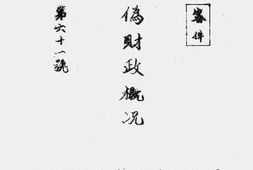 密件
偽財政概况
第六十一號